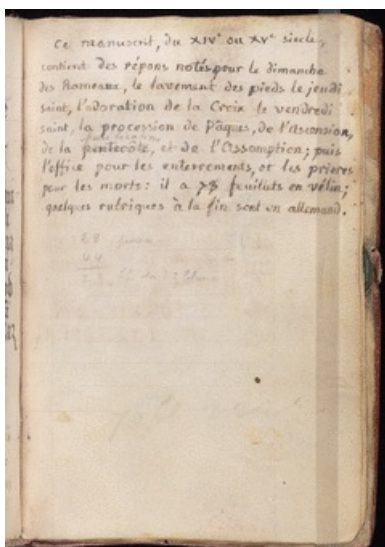 Ce manuscrit, du XIVe ou XVe siecle,
contient des répons notés pour le dimanche
des Rameaux, le lavement des pieds le jeudi
saint, l'adoration de la Croix le vendredi
saint, la procession de Pâques, de l'Ascension,
de la pentecôte, et de l'Assomption; puis
l'office pour les enterrements, et les prieres
pour les morts: il a feuillets en vélin;
quelques rubriques à la fin sont en allemand.